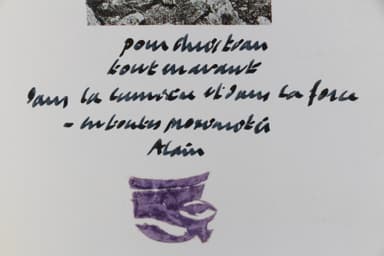 pour christian
tout en avant
dans la lumière et dans la force
- en toutes proximités
Alain